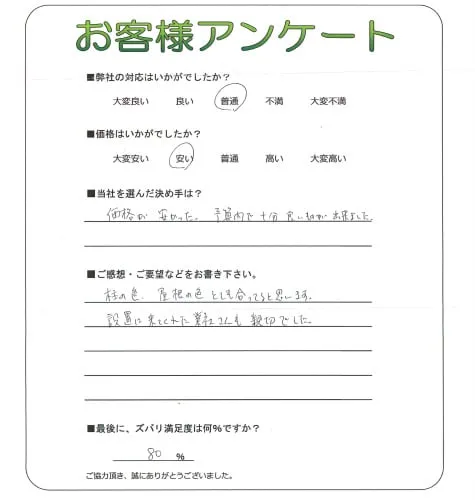 お客様アンケート
■弊社の対応はいかがでしたか？
大変良い 良い 普通 不満 大変不満
■価格はいかがでしたか？
大変安い 安い 普通 高い 大変高い
■当社を選んだ決め手は？
価格が 安かった。予算内で 十分 良い物が 出来ました
■ご感想・ご要望などをお書き下さい。
柱の色、屋根の色 とても合ってると思います。
設置に来てくれた業社さんも 親切でした。
■最後に、ズバリ満足度は何%ですか？
80 %
ご協力頂き、誠にありがとうございました。